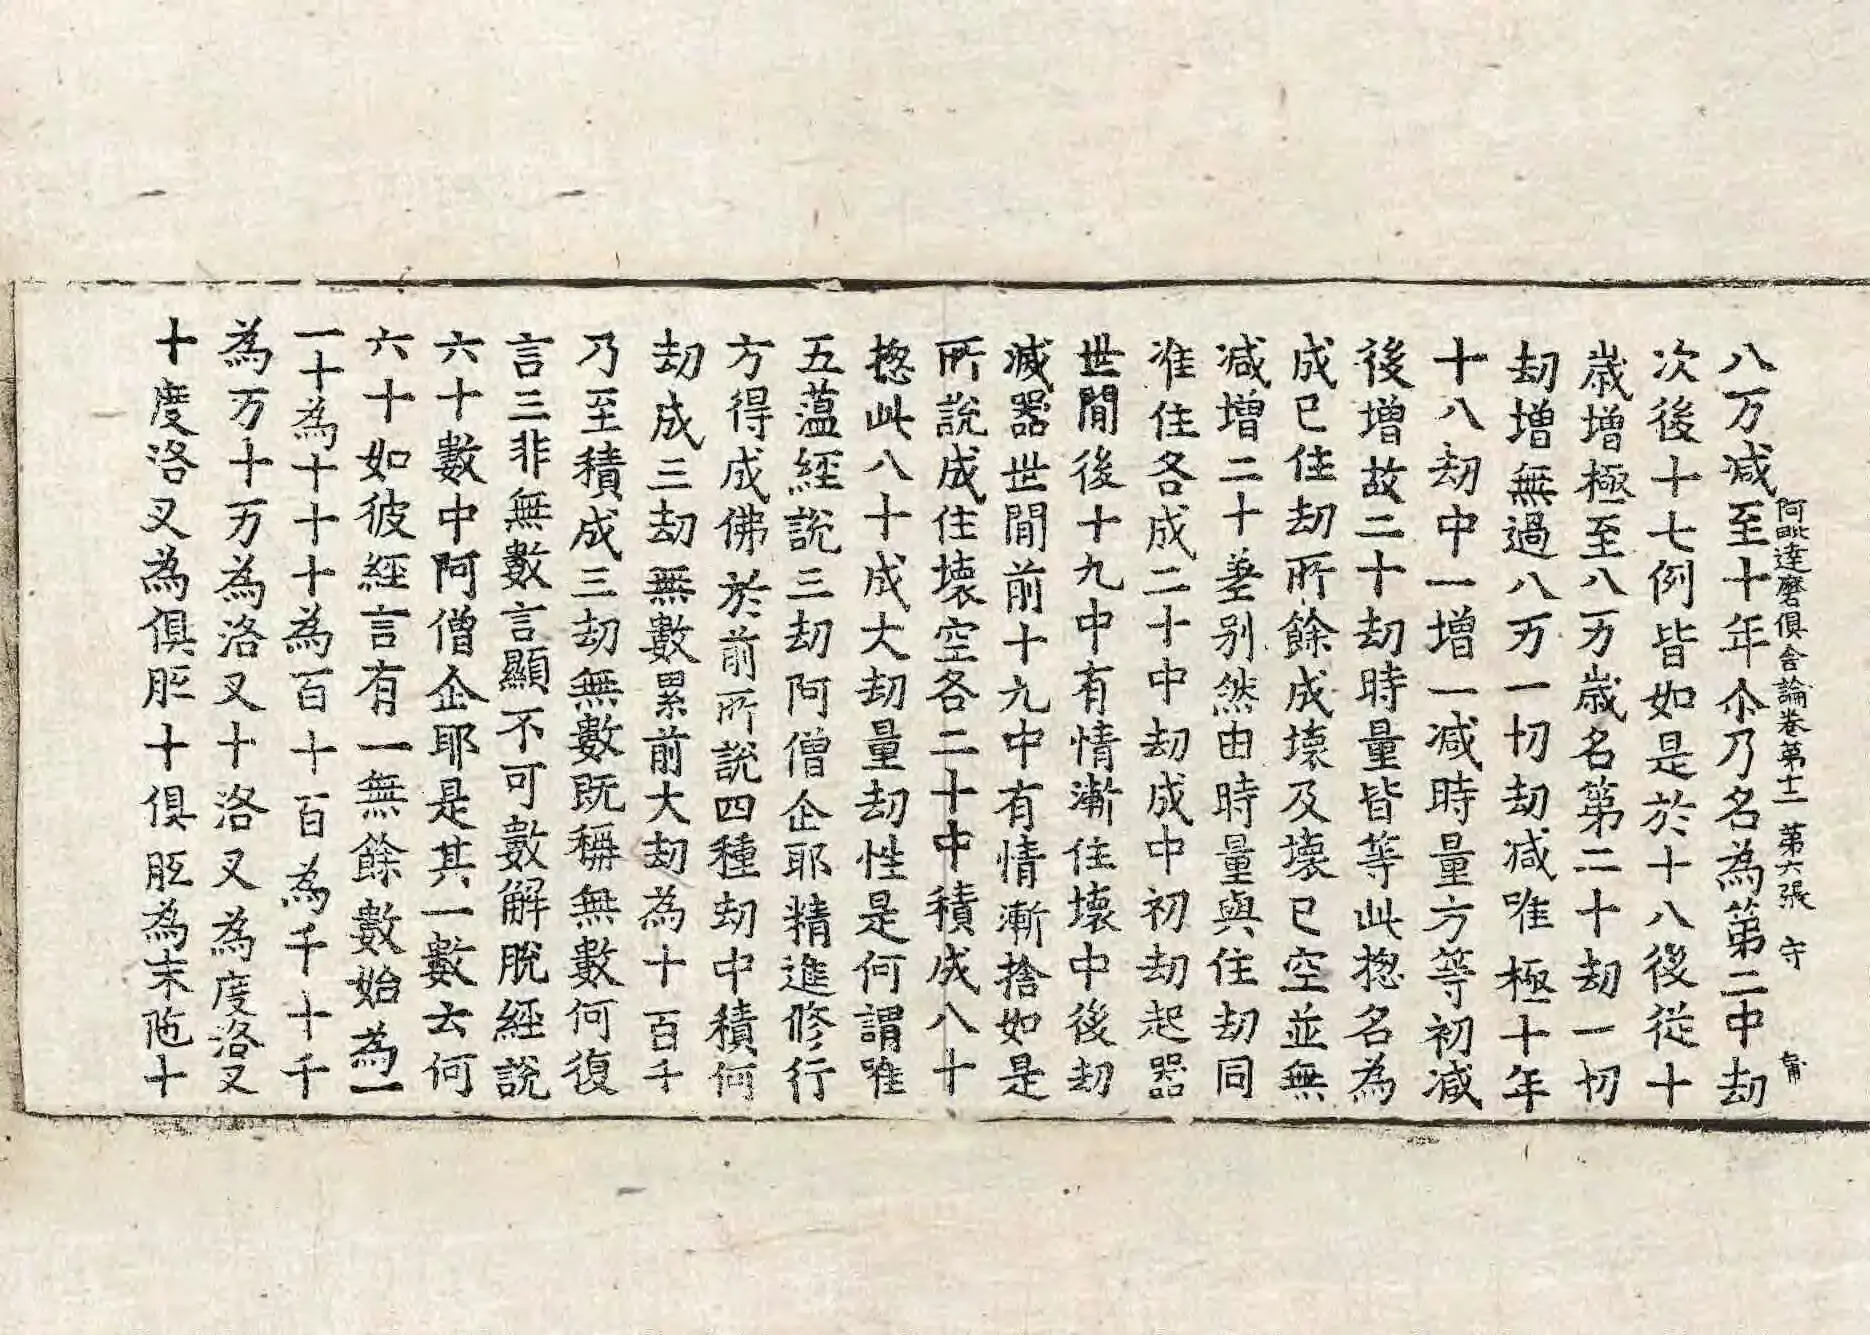 阿毗達磨俱舍論卷第十二 第六張 守
八万减至十年尒乃名為第二中劫
次後十七例皆如是於十八後從十
歲增極至八万歲名第二十劫一切
劫增無過八万一切劫减唯極十年
十八劫中一增一减時量方等初减
後增故二十劫時量皆等此揔名為
成已住劫所餘成壞及壞已空並無
减增二十差别然由時量與住劫同
准住各成二十中劫成中初劫起器
世閒後十九中有情漸住壞中後劫
减器世閒前十九中有情漸捨如是
所說成住壞空各二十中積成八十
揔此八十成大劫量劫性是何謂唯
五蘊經說三劫阿僧企耶精進修行
方得成佛於前所說四種劫中積何
劫成三劫無數累前大劫為十百千
乃至積成三劫無數旣稱無數何復
言三非無數言顯不可數解脫經說
六十數中阿僧企耶是其一數云何
六十如彼經言有一無餘數始為一
一十為十十十為百十百為千十千
為万十万為洛叉十洛叉為度洛叉
十度洛叉為俱胝十俱胝為末陁十